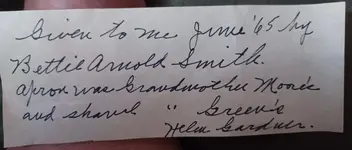 Given to me June '65 by
Bettie Arnold Smith.
Apron was Grandmother Moore's
and shawl " Green's
Helen Gardner.